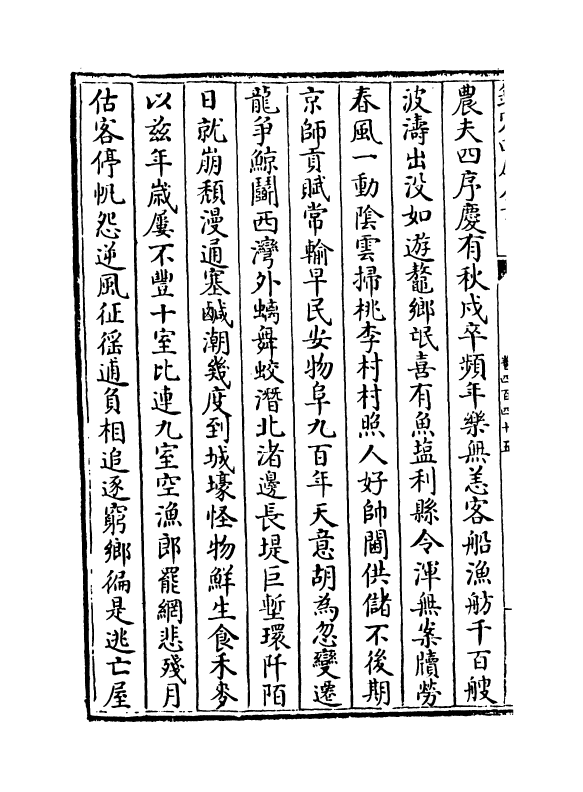 農夫四序慶有秋戍卒頻年樂無恙客船漁舫千百艘
波濤出没如遊鼇鄉氓喜有魚塩利縣令渾無案牘勞
春風一動陰雲掃桃李村村照人好帥閫供儲不後期
京師貢賦常輸早民安物阜九百年天意胡為忽變遷
龍爭鯨鬭西灣外螭舞蛟潛北渚邊長堤巨塹環阡陌
日就崩頽漫通塞鹹潮幾度到城壕怪物鮮生食禾麥
以兹年歲屢不豐十室比連九室空漁郎罷網悲殘月
估客停帆怨逆風征徭逋負相追逐窮鄉徧是逃亡屋
卷四百四十五